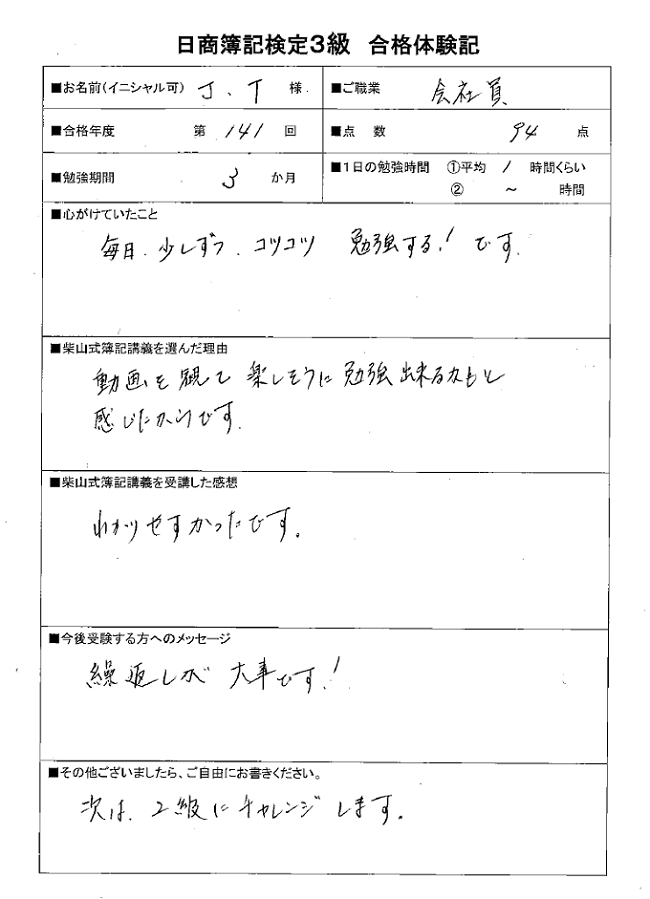 日商簿記検定3級 合格体験記
■お名前(イニシャル可) J.T 様 ■ご職業 会社員
■合格年度 第 141 回 ■点 数 94 点
■勉強期間 3 か月 ■1日の勉強時間 ①平均 1 時間くらい
② ~ 時間
■心がけていたこと
毎日、少しずつ、コツコツ 勉強する!です。
■柴山式簿記講義を選んだ理由
動画を観て楽しそうに勉強出来るカモと
感じたからです。
■柴山式簿記講義を受講した感想
わかりやすかったです。
■今後受験する方へのメッセージ
繰返しが大事です!
■その他ございましたら、ご自由にお書きください。
次は、2級にチャレンジします。